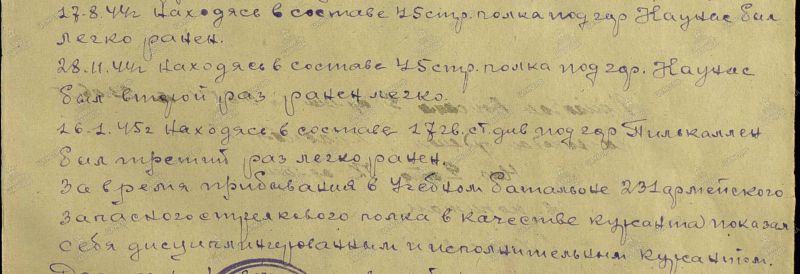 17.8.44г находясь в составе 45 стр. полка под гор Каунас был
легко ранен.
28.11.44г находясь в составе 45 стр. полка под гор. Каунас
был второй раз ранен легко.
16.1.45г находясь в составе 17 гв. ст. див под гор Пилькаллен
был третий раз легко ранен.
За время прибывания в Учебном батальоне 231 армейского
Запасного стрелкового полка в качестве курсанта показал
себя дисциплинированным и исполнительным курсантом.